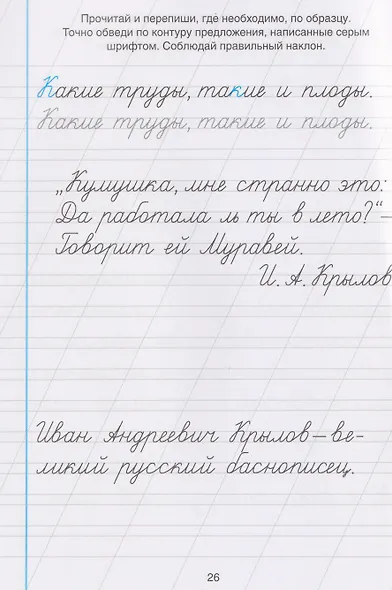 Прочитай и перепиши, где необходимо, по образцу.
Точно обведи по контуру предложения, написанные серым
шрифтом. Соблюдай правильный наклон.
Какие труды, такие и плоды.
Какие труды, такие и плоды.
„Кумушка, мне странно это:
Да работала ль ты в лето?“ –
Говорит ей Муравей.
И. А. Крылов
Иван Андреевич Крылов – ве-
ликий русский баснописец.
26